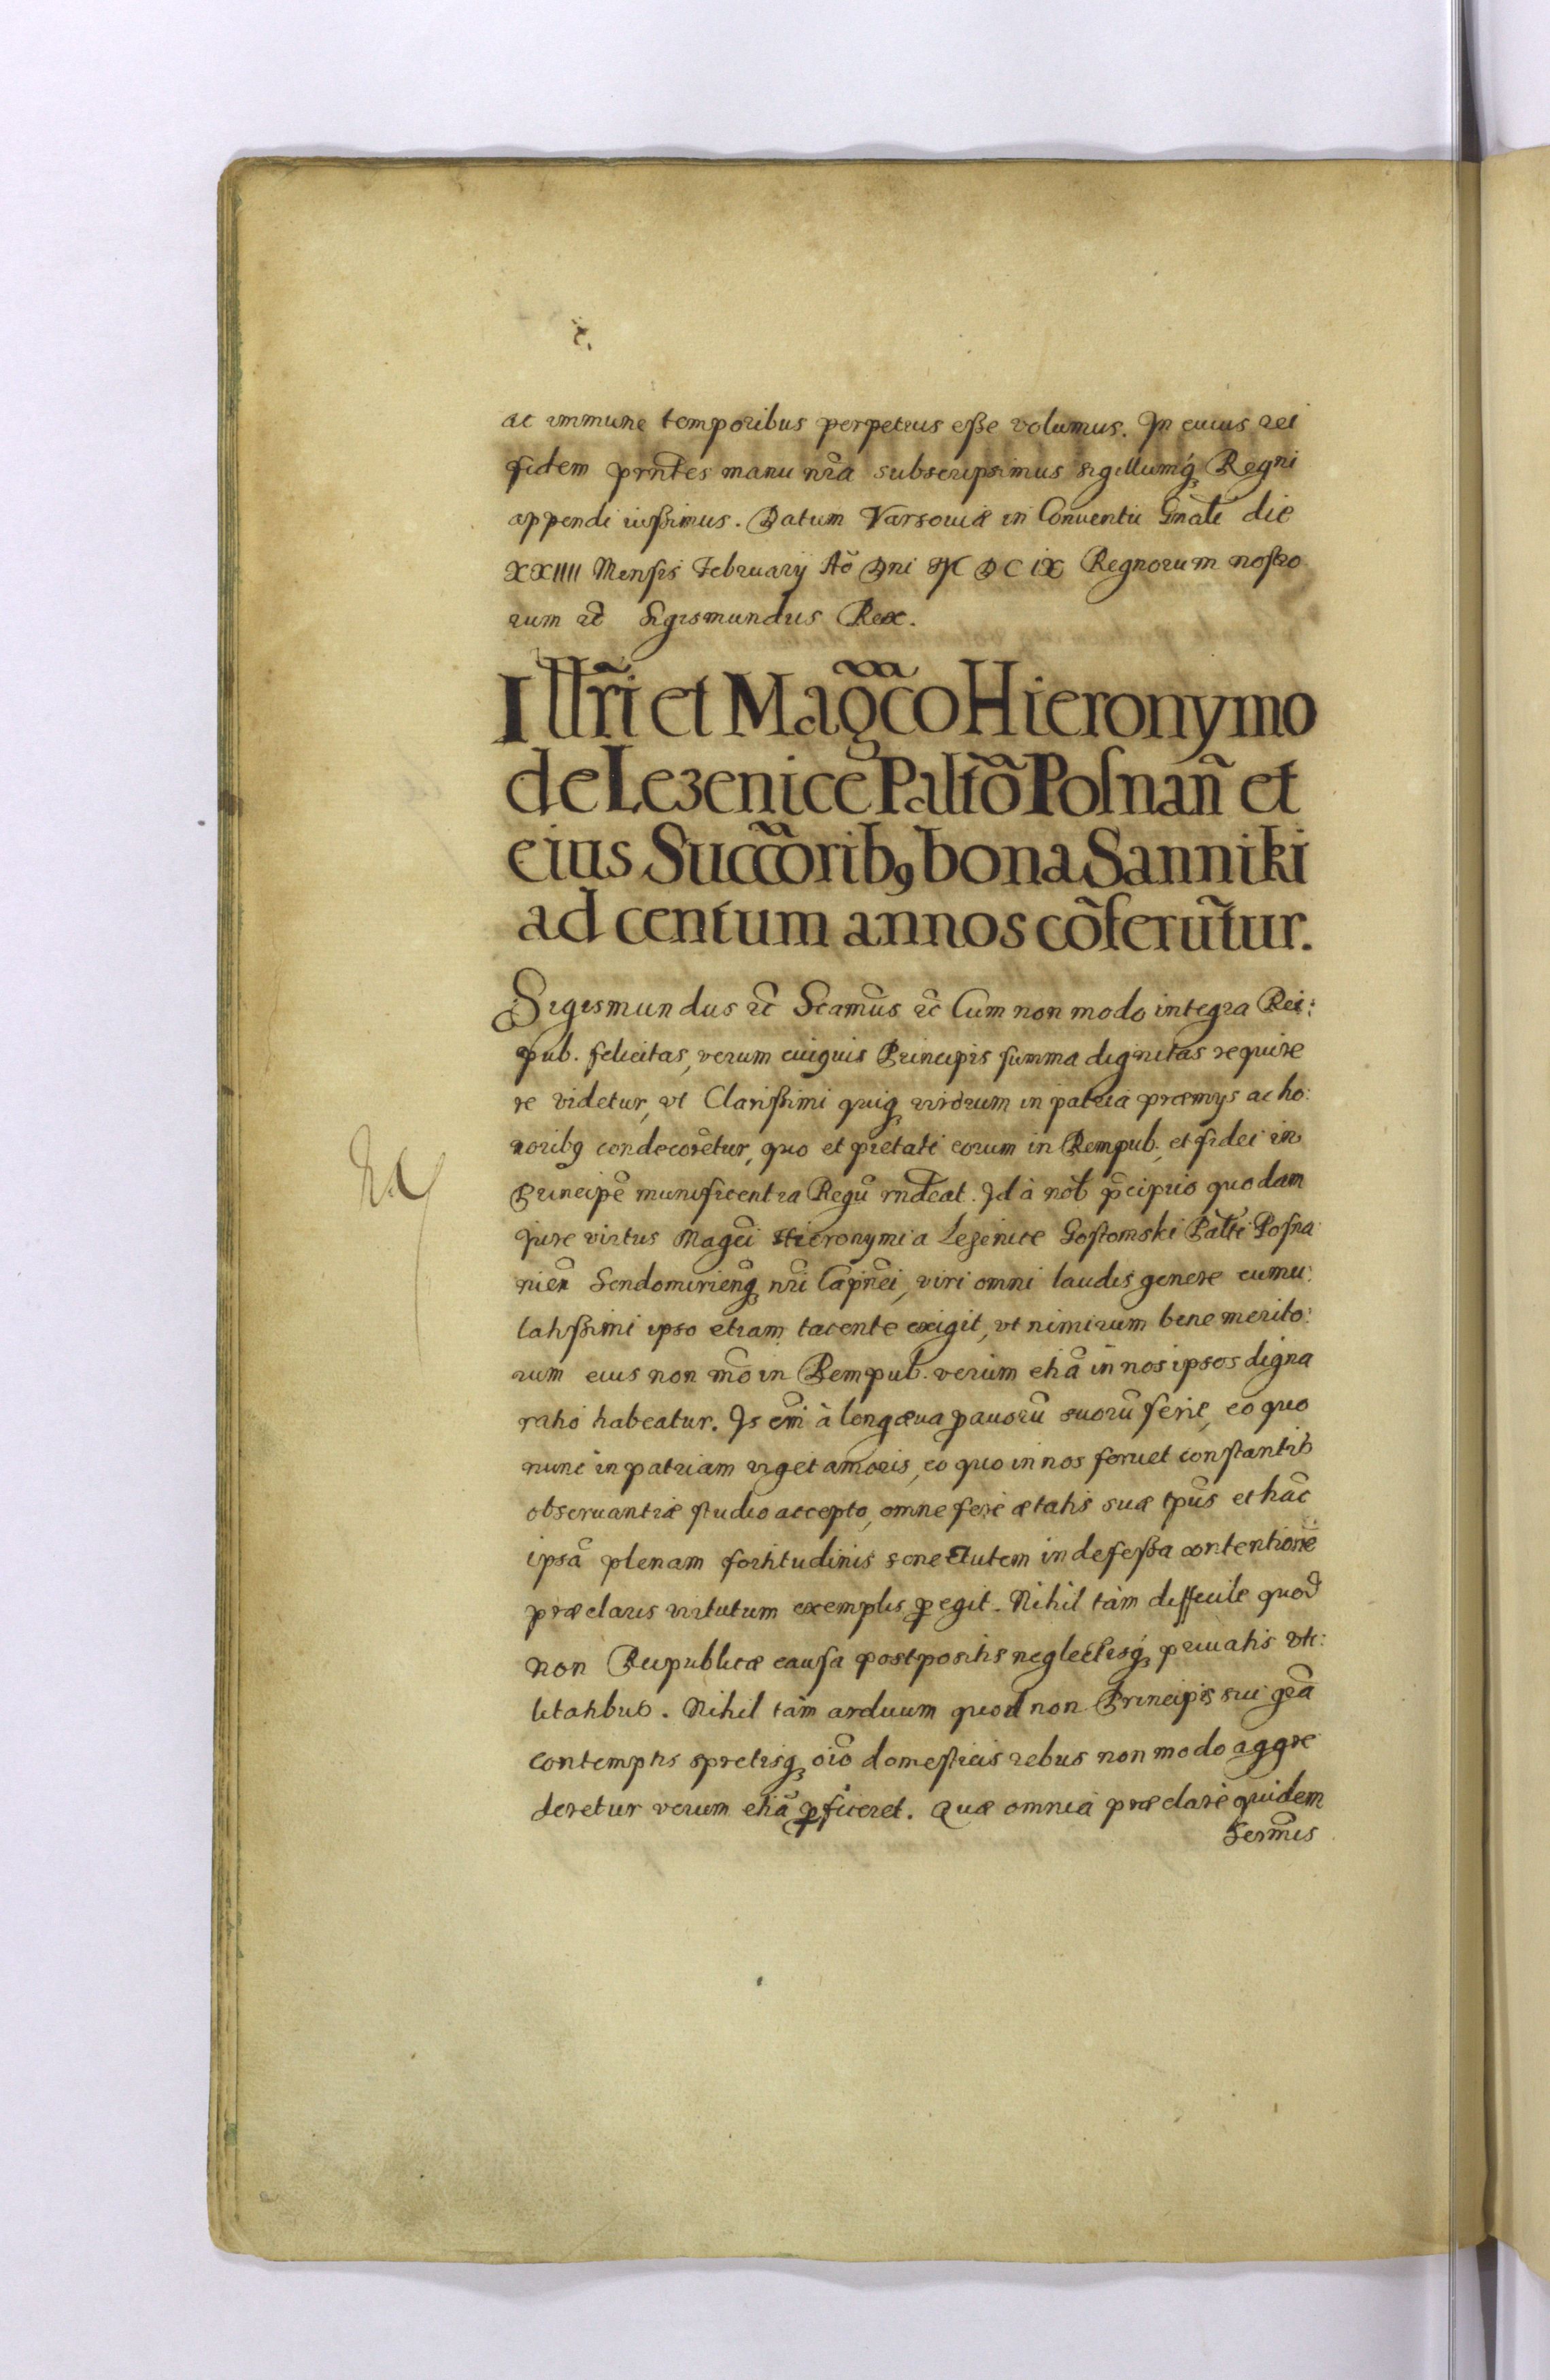 ac immune temporibus perpetuis eße volumus. In cuius rei
fidem prñtes manu nr̃a subscripsimus sigillumq̃ Regni
appendi iußimus. Datum Varsouiæ in Conuentu Gñali die
XXIIII Mensis February Aõ Dñi M DC IX Regnorum nostro
rum ec̃ Sigismundus Rex.
Illr̃i et Mag̃co Hieronymo
de Lezenice Paltõ Posnañ et
eius Succõrib9 bona Sanniki
ad centum annos cõferũtur.
Sigismundus ec̃ Scamũs ec̃ Cum non modo integra Rei:
pub. felicitas, verum cuiquis Principis summa dignitas require
re videtur, vt Clarißimi quiq̃ virorum in patria præmys ac ho:
noribq condecorẽtur, quo et pietati eorum in Rempub. et fidei in
Principẽ munificentia Regũ rñdeat. Id à nob p̃cipuo quodam
jure virtus Magc̃i Hieronymi a Lezenice Gostomski Palt̃i Posna
nieñ Sendomirienq̃ nr̃i Cap̃nei, viri omni laudis genere cumu:
latißimi ipso etiam tacente exigit, vt nimirum bene merito:
rum eius non mõ in Rempub. verùm etiã in nos ipsos digna
ratio habeatur. Is em̃ à longæua p̱auorũ suorũ serie, eo quo
nunc in patriam viget amoris, eo quo in nos feruet constantis
obseruantiæ studio accepto, omne ferè ætatis suæ tp̃us et hãc
ipsã plenam fortitudinis senectutem indefeßa contentione
præclaris virtutum exemplis p̱egit. Nihil tàm difficile quod
non Reipublicæ causa postpositis neglectisq̃ priuatis vti:
litatibus. Nihil tàm arduum quod non Principis sui gr̃a
contemptis spretisq̃ oĩb domesticis rebus non modo aggre
deretur verum etiã p̱ficeret. Quæ omnia præclarè quidem
Serm̃is